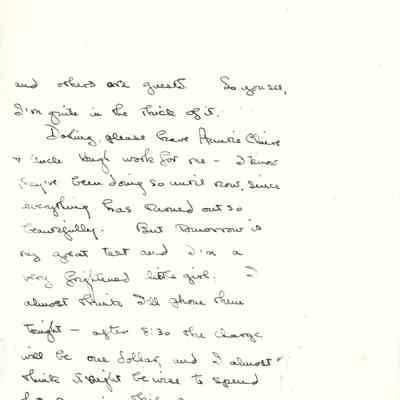 and others are guests. So you see,
I'm quite in the thick of it.
Darling, please have Auntie Claire
& Uncle Hugh work for me - I know
they've been doing so until now, since
everything has turned out so
beautifully. But tomorrow is
my great test and I'm a
very frightened little girl. I
almost think I'll phone them
tonight - after 8:30 the charge
will be one dollar, and I almost
think it might be wise to spend